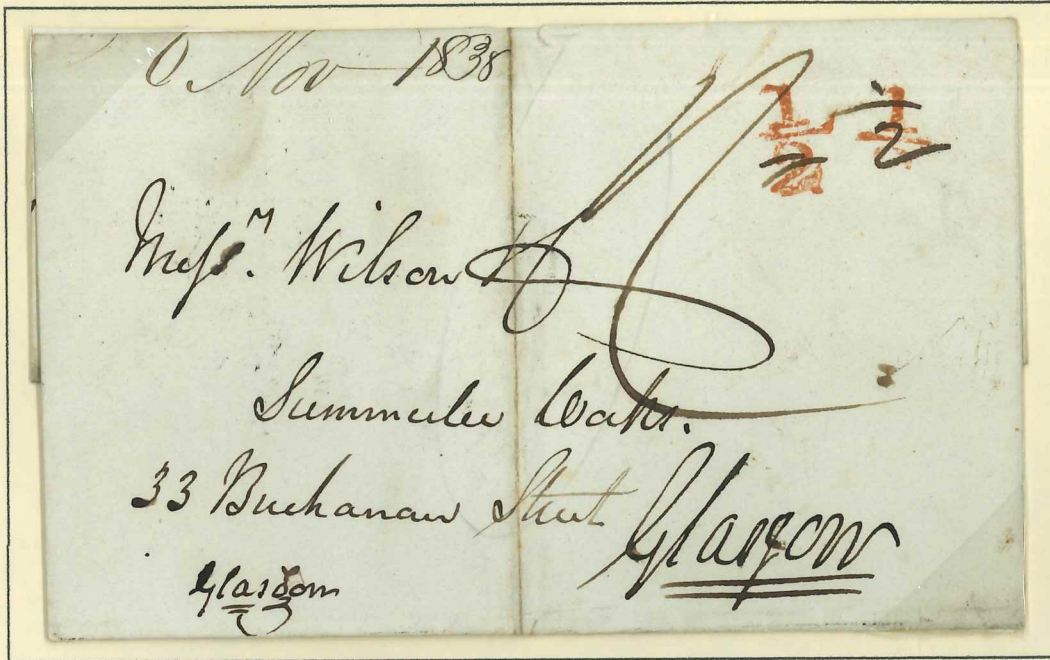 Nov 1838
1/2
1/2
Mess.rs Wilson &
Summerlee
33 Buchanan Street
Glasgow
Glasgow